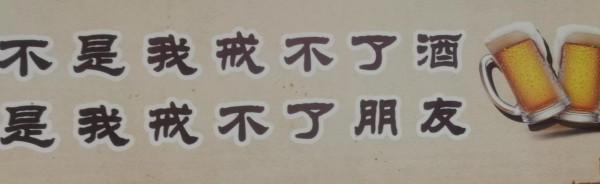 不是我戒不了酒
是我戒不了朋友